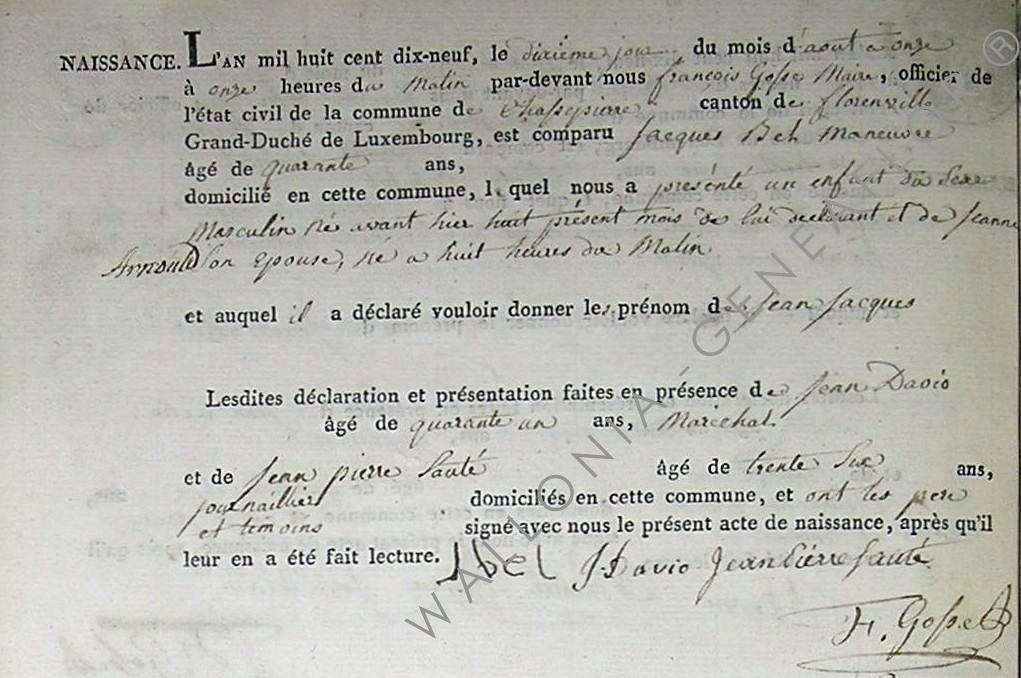 NAISSANCE. L'AN mil huit cent dix-neuf, le dixieme jour du mois d'aout a onze
à onze heures du Matin par-devant nous françois Gosse Maire, officier de
l'état civil de la commune de Chassepierre canton de florenville
Grand-Duché de Luxembourg, est comparu Jacques Maneuvre
âgé de quarante ans,
domicilié en cette commune, lequel nous a présenté un enfant du Sexe
Masculin né avant hier huit présent mois de lui déclarant et de Jeanne
Arnould son epouse, né a huit heures du Matin
et auquel il a déclaré vouloir donner les prénom de Jean Jacques
Lesdites déclaration et présentation faites en présence de Jean David
âgé de quarante un ans, Maréchal
et de Jean pierre Lauté âgé de trente Six ans,
journaillier domiciliés en cette commune, et ont les pere
et temoins signé avec nous le présent acte de naissance, après qu'il
leur en a été fait lecture. J Davio Jean Piérre Lauté
F. Gosse
WALLONIA GENEALOGY ®